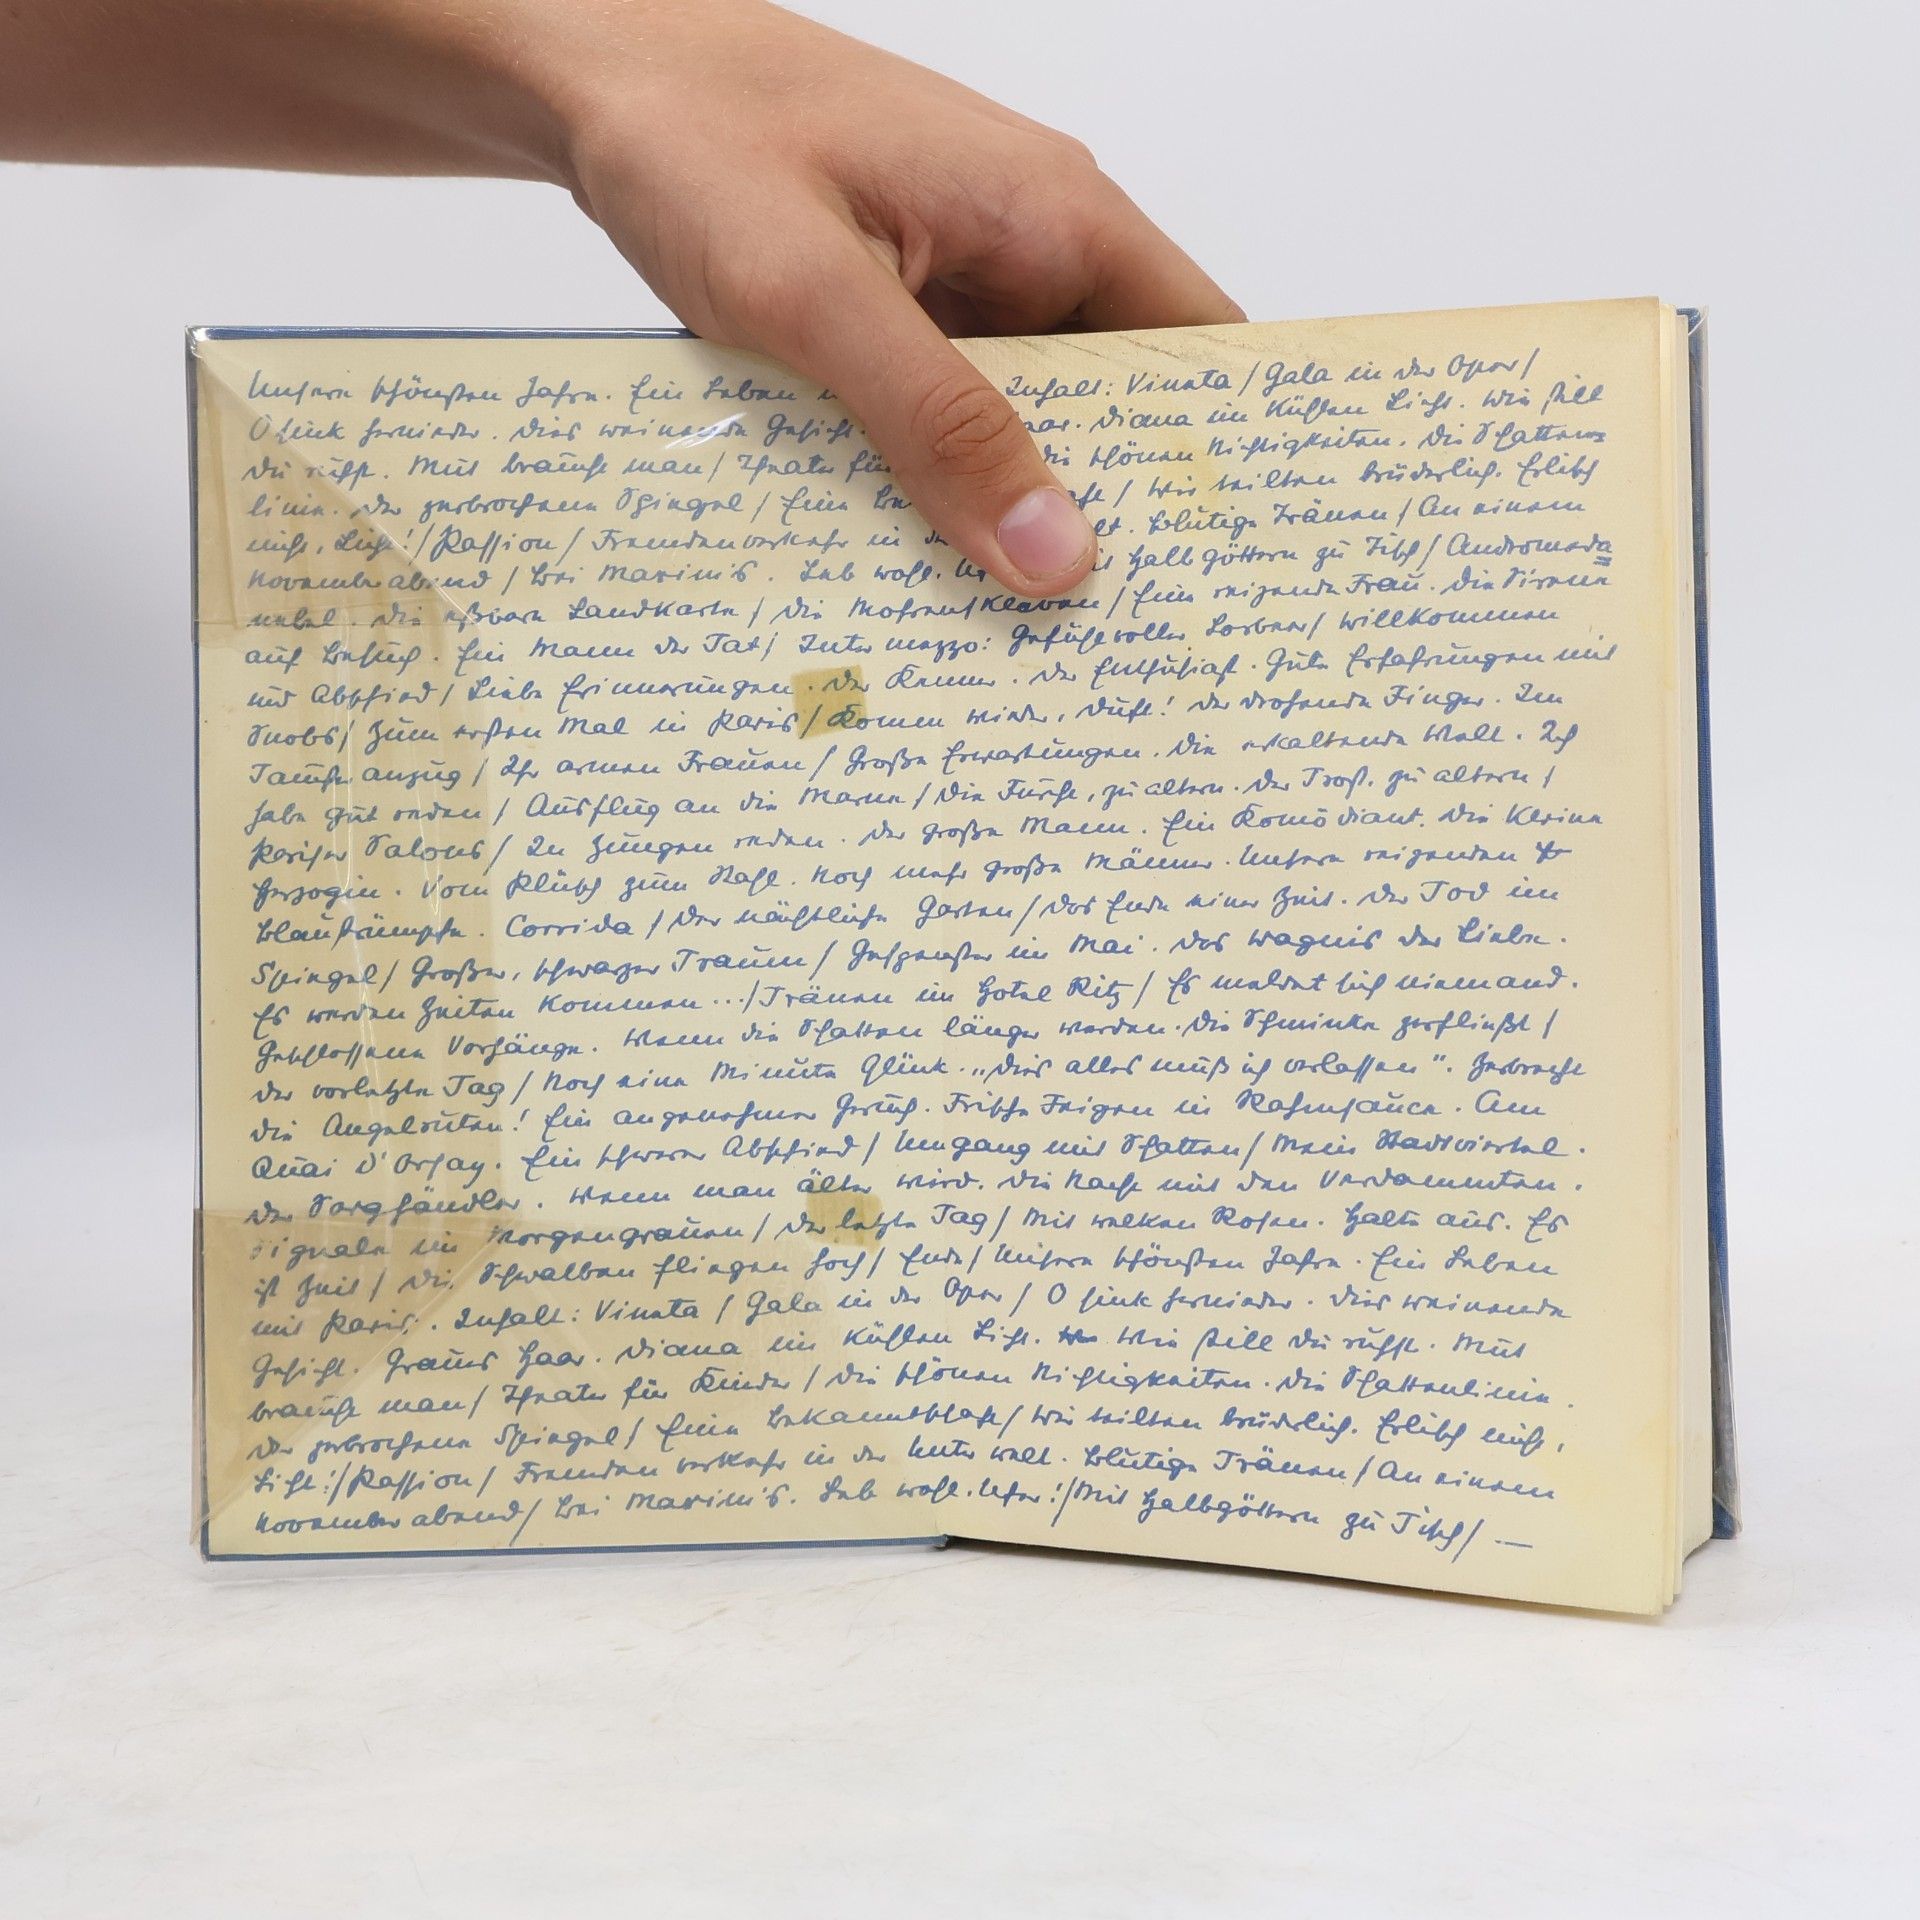 Unsere schönsten Jahre. Ein Leben Inhalt: Vineta / Gala in der Oper /
O sink hernieder. Dies weinende Gesicht. Diana im kühlen Licht. Wie still
du ruhst. Mut brauchst man / Theater für die schönen Nichtigkeiten. Die Schatten=
linie. Der zerbrochene Spiegel / Eine / Wir teilten brüderlich. Erlisch
nicht, Licht! / Passion / Fremdenverkehr in Blutige Tränen / An einem
Novemberabend / Bei Maxim's. Leb wohl. Halbgöttern zu Tisch / Andromeda=
nebel. Die eßbare Landkarte / Die Mohrensklaven / Eine reizende Frau. Die Sirene
auf Besuch. Ein Mann der Tat / Intermezzo: Gefühlvoller Lorbeer / Willkommen
und Abschied / Liebe Erinnerungen. Der Kenner. Der Enthusiast. Gute Erfahrungen mit
Snobs / Zum ersten Mal in Paris / Komm wieder, Duft! Der drohende Finger. Im
Taufanzug / Ihr armen Frauen / Große Erwartungen. Die erkaltende Welt. Ich
habe gut reden / Ausflug an die Marne / Die Furcht, zu altern. Der Trost, zu altern /
Pariser Salons / In Zungen reden. Der große Mann. Ein Komödiant. Die kleine
Herzogin. Vom Plüsch zum Stahl. Noch mehr große Männer. Unsere reizenden
Blaustrümpfe. Corrida / Der nächtliche Garten / Das Ende einer Zeit. Der Tod im
Spiegel / Großer, schwarzer Traum / Gespenster im Mai. Das Wagnis der Liebe.
Es werden Zeiten kommen... / Tränen im Hotel Ritz / Es meldet sich niemand.
Geschlossene Vorhänge. Wenn die Schatten länger werden. Die Schminke zerfließt /
Der vorletzte Tag / Noch eine Minute Glück. „Dies alles muß ich verlassen". Zerbrecht
die Angelruten! Ein angenehmer Geruch. Frische Feigen in Rahmsauce. Am
Quai d'Orsay. Ein schwerer Abschied / Umgang mit Schatten / Mein Stadtviertel.
Der Sarghändler. Wenn man älter wird. Die Nacht mit den Verdammten.
Signale im Morgengrauen / Der letzte Tag / Mit welken Rosen. Halte aus. Es
ist Zeit / Die Schwalben fliegen hoch / Ende / Unsere schönsten Jahre. Ein Leben
mit Paris. Inhalt: Vineta / Gala in der Oper / O sink hernieder. Dies weinende
Gesicht. Graues Haar. Diana im kühlen Licht. Wie still du ruhst. Mut
braucht man / Theater für Kinder / Die schönen Nichtigkeiten. Die Schattenlinie.
Der zerbrochene Spiegel / Eine Bekanntschaft / Wir teilten brüderlich. Erlisch nicht,
Licht! / Passion / Fremdenverkehr in der Unterwelt. Blutige Tränen / An einem
Novemberabend / Bei Maxim's. Leb wohl. Ufer! / Mit Halbgöttern zu Tisch / —